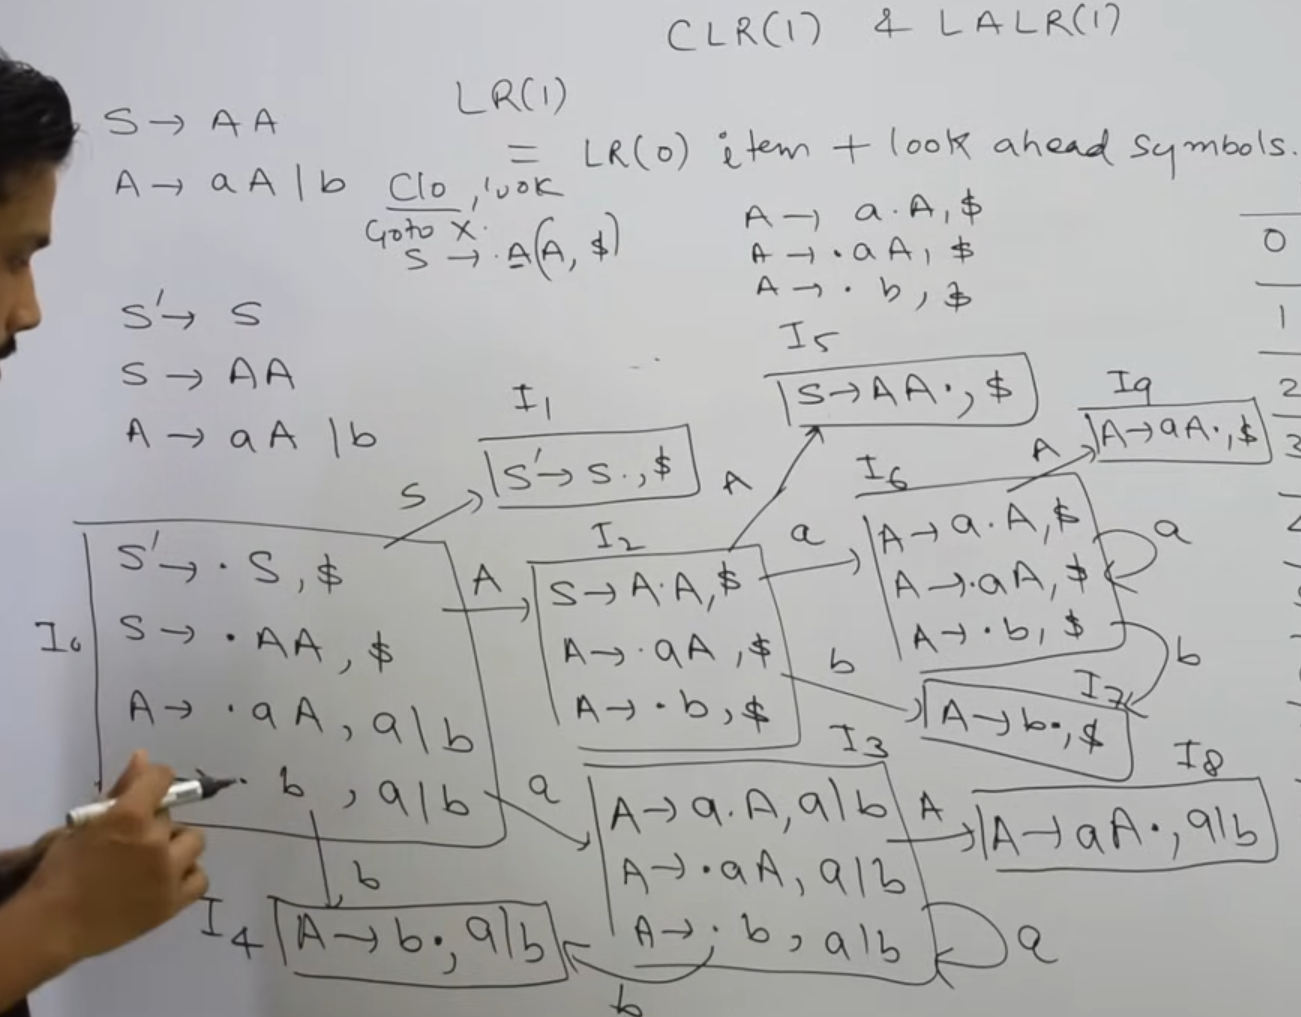 CLR(1) & LALR(1)
LR(1)
= LR(0) item + look ahead symbols.
S → AA
A → aA | b
Clo, look
Goto X.
S → .A(A, $)
A → a.A, $
A → .aA, $
A → . b, $
S' → S
S → AA
A → aA | b
0
1
2
3
I0
S' → . S, $
S → . AA, $
A → . aA, a|b
. b, a|b
S
I1
S' → S., $
A
I2
S → A.A, $
A → .aA, $
A → . b, $
A
I5
S → AA., $
a
I6
A → a.A, $
A → .aA, $
A → . b, $
a
A
I9
A → aA., $
b
b
I7
A → b., $
a
I3
A → a.A, a|b
A → .aA, a|b
A → . b, a|b
a
A
I8
A → aA., a|b
b
I4
A → b., a|b
b